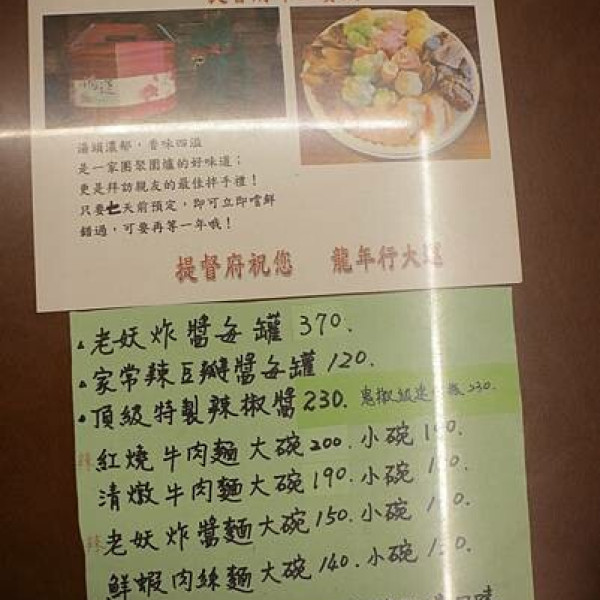 湯頭濃郁，香味四溢
是一家團聚圍爐的好味道；
更是拜訪親友的最佳拌手禮！
只要七天前預定，即可立即嚐鮮
錯過，可要再等一年哦！
提督府祝您 龍年行大運
老妖炸醬每罐 370.
家常辣豆瓣醬每罐 120.
頂級特製辣椒醬 230. 鬼椒級 230.
辣 紅燒牛肉麵大碗 200. 小碗
清燉牛肉麵大碗 190. 小碗
辣 老妖炸醬麵大碗 150. 小碗
鮮蝦肉絲麵大碗 140. 小碗